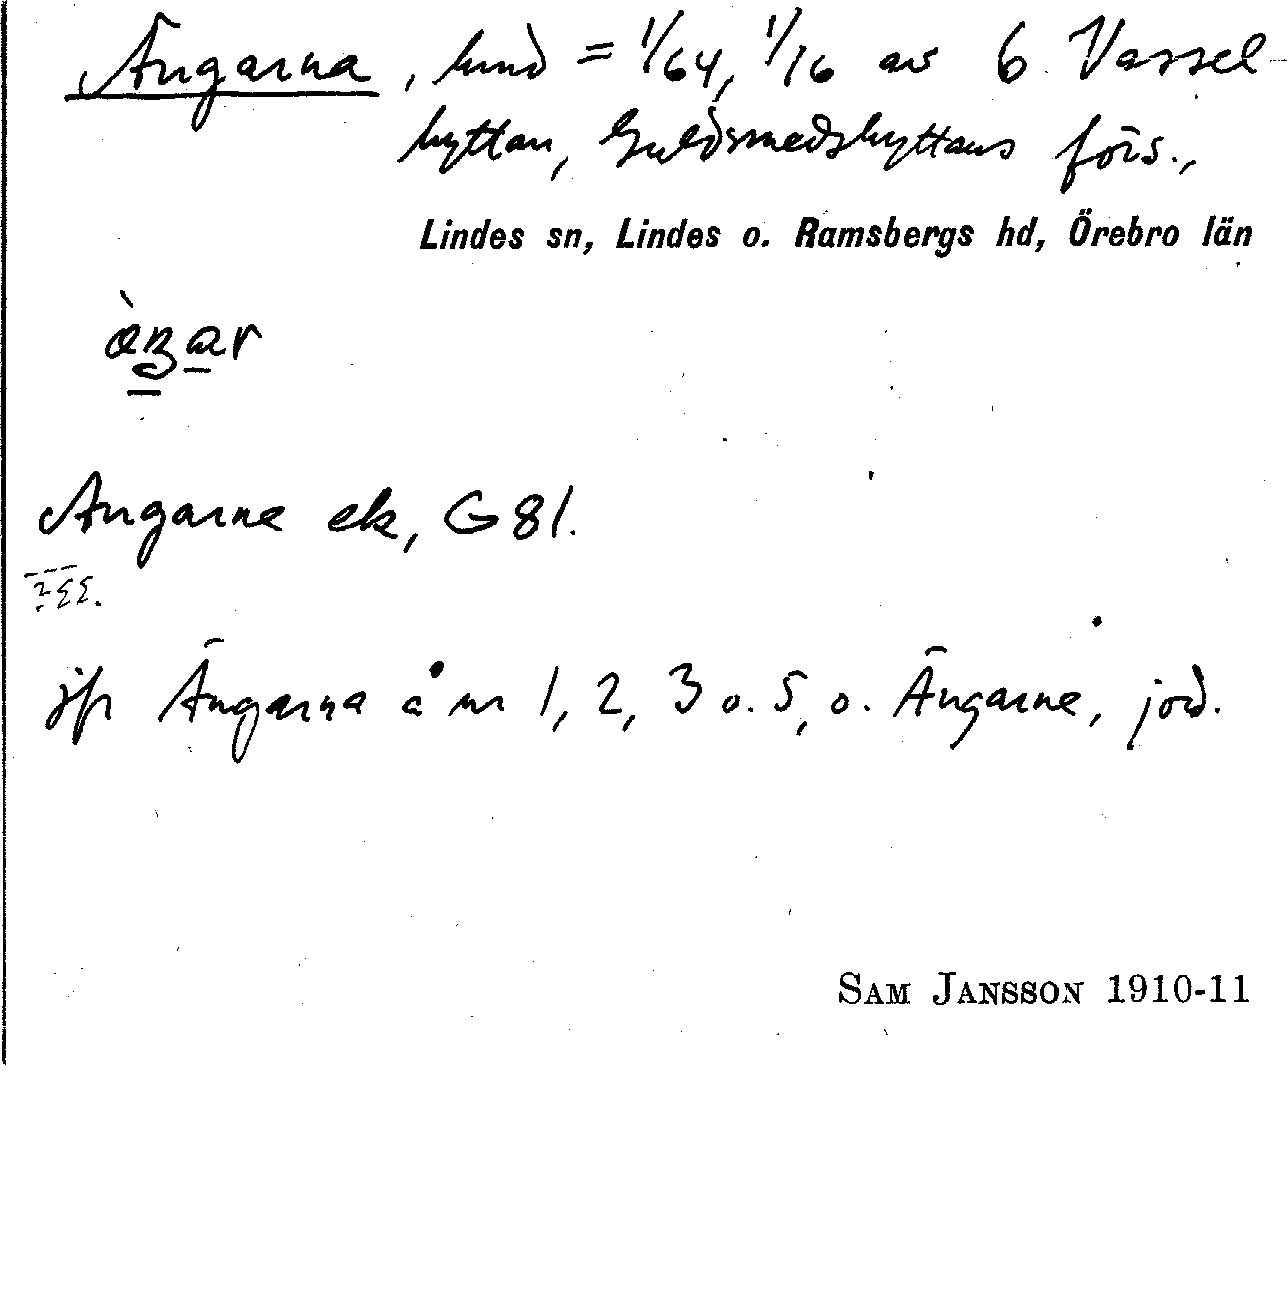 Ängarna, hmd = 1/64, 1/16 av 6 Vassel-
hyttan, Guldsmedshyttans förs.,
Lindes sn, Lindes o. Ramsbergs hd, Örebro län
Ängarne ek, G 81.
jfr Ängarna å nr 1, 2, 3 o. 5, o. Ängarne, jord.
SAM JANSSON 1910-11